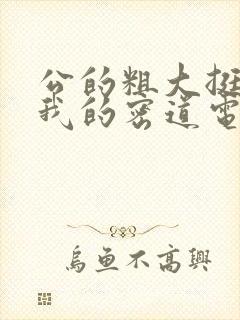 公的粗大挺
我的密道电
乌鱼不高兴